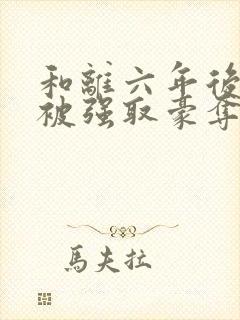 和離六年後
被强取豪奪
馬夫拉